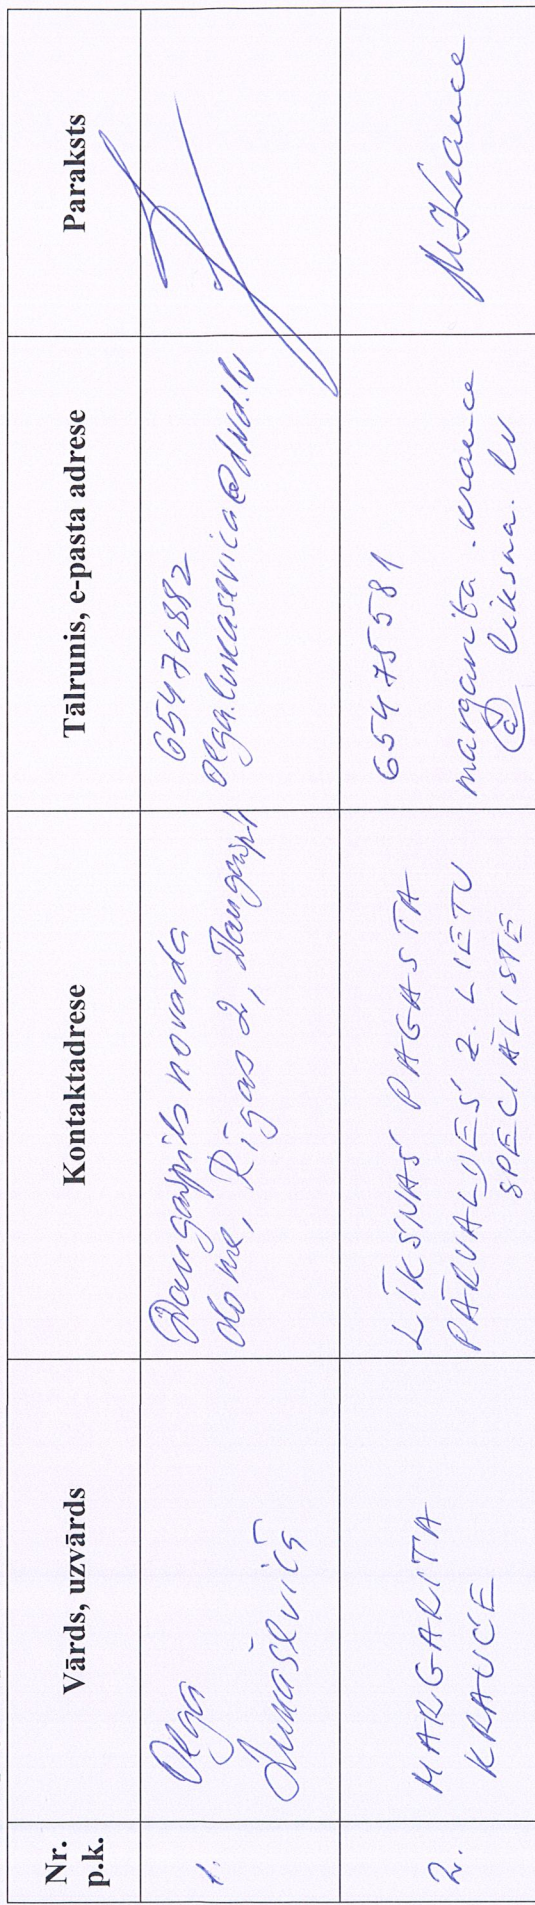 Nr.
p.k.
Vārds, uzvārds
Kontaktadrese
Tālrunis, e-pasta adrese
Paraksts
1.
Olga
Lukaševiča
Daugavpils novada
dome, Rīgas 2, Daugavpil
65476882
olga.lukasevica@dnd.lv
2.
MARGARITA
KRAUCE
LĪKSNAS PAGASTA
PĀRVALDES Z. LIETU
SPECIĀLISTE
65475581
margarita.krauce
@ liksna.lv
MKrauce